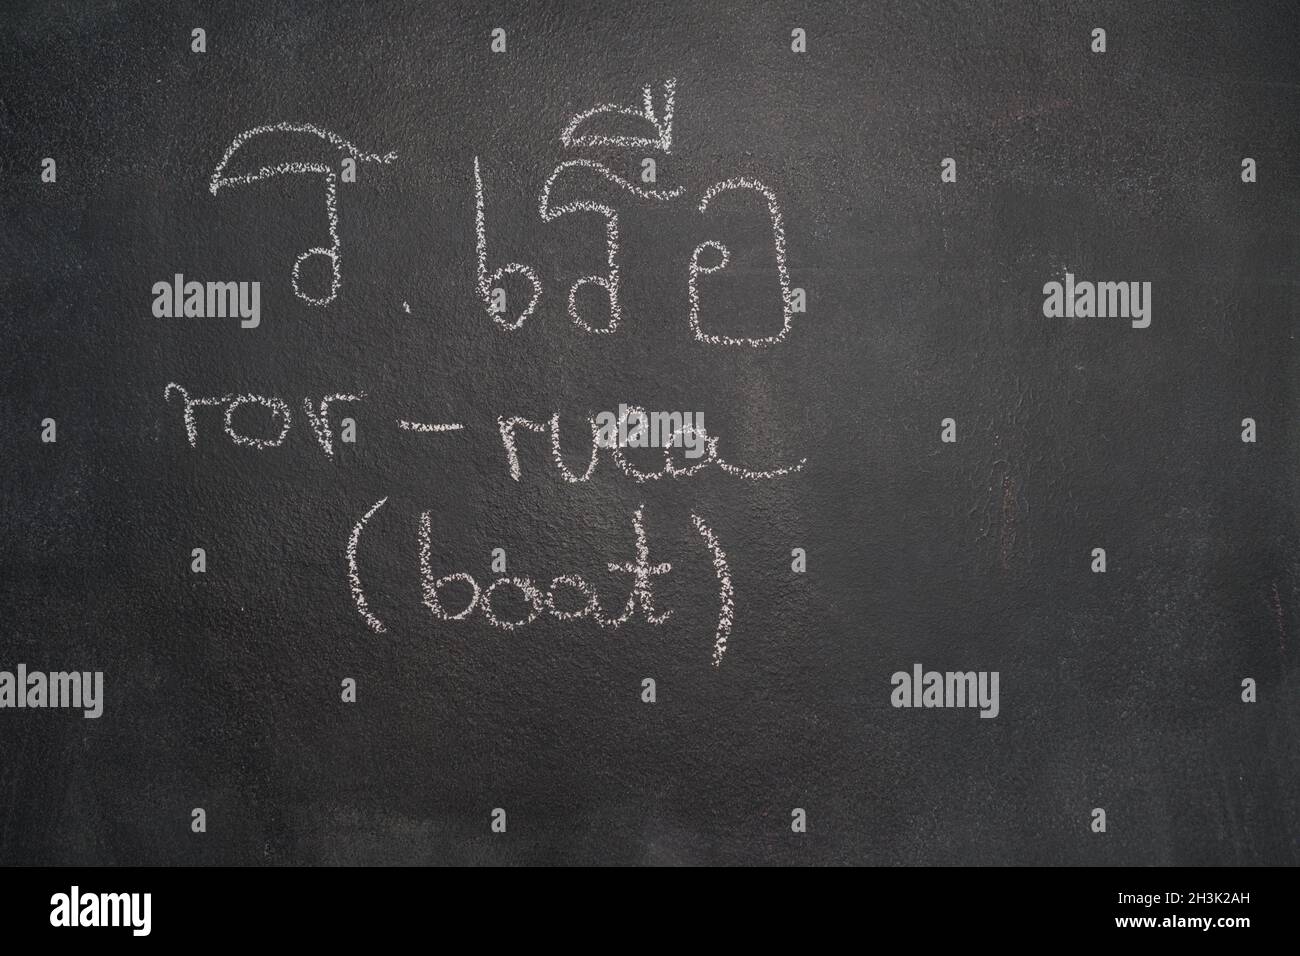 ร . เรือ
ror - ruea
(boat)
alamy
alamy
alamy
alamy
alamy
Image ID: 2H3K2AH
www.alamy.com